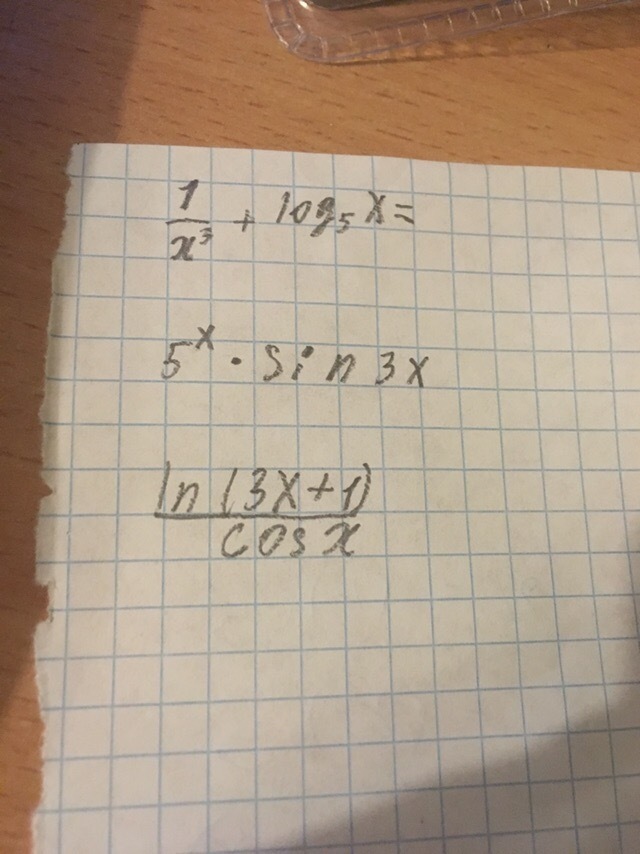 1/x³ + log₅ x =
5ˣ · sin 3x
ln (3x+1) / cos x